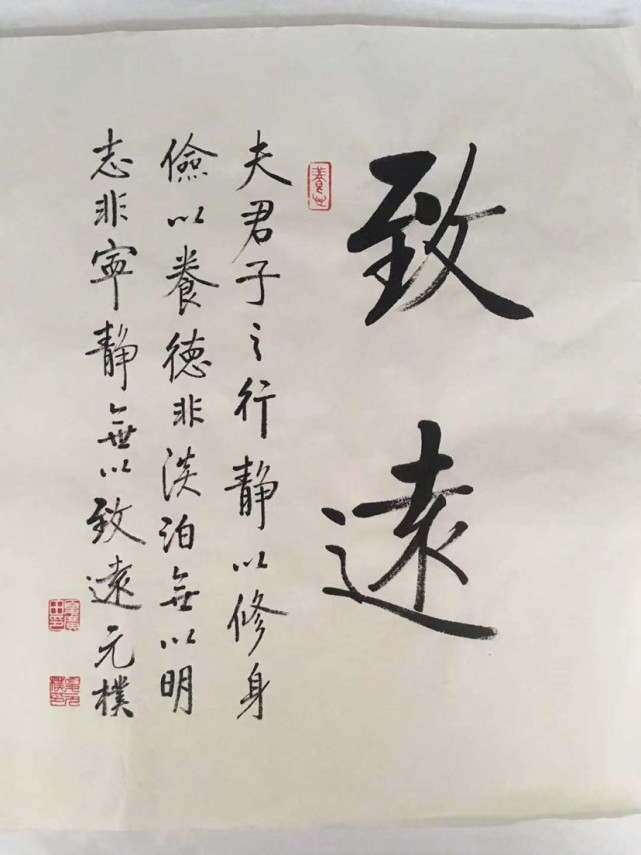 致遠
夫君子之行静以修身
儉以養德非淡泊無以明
志非寧静無以致遠元樸